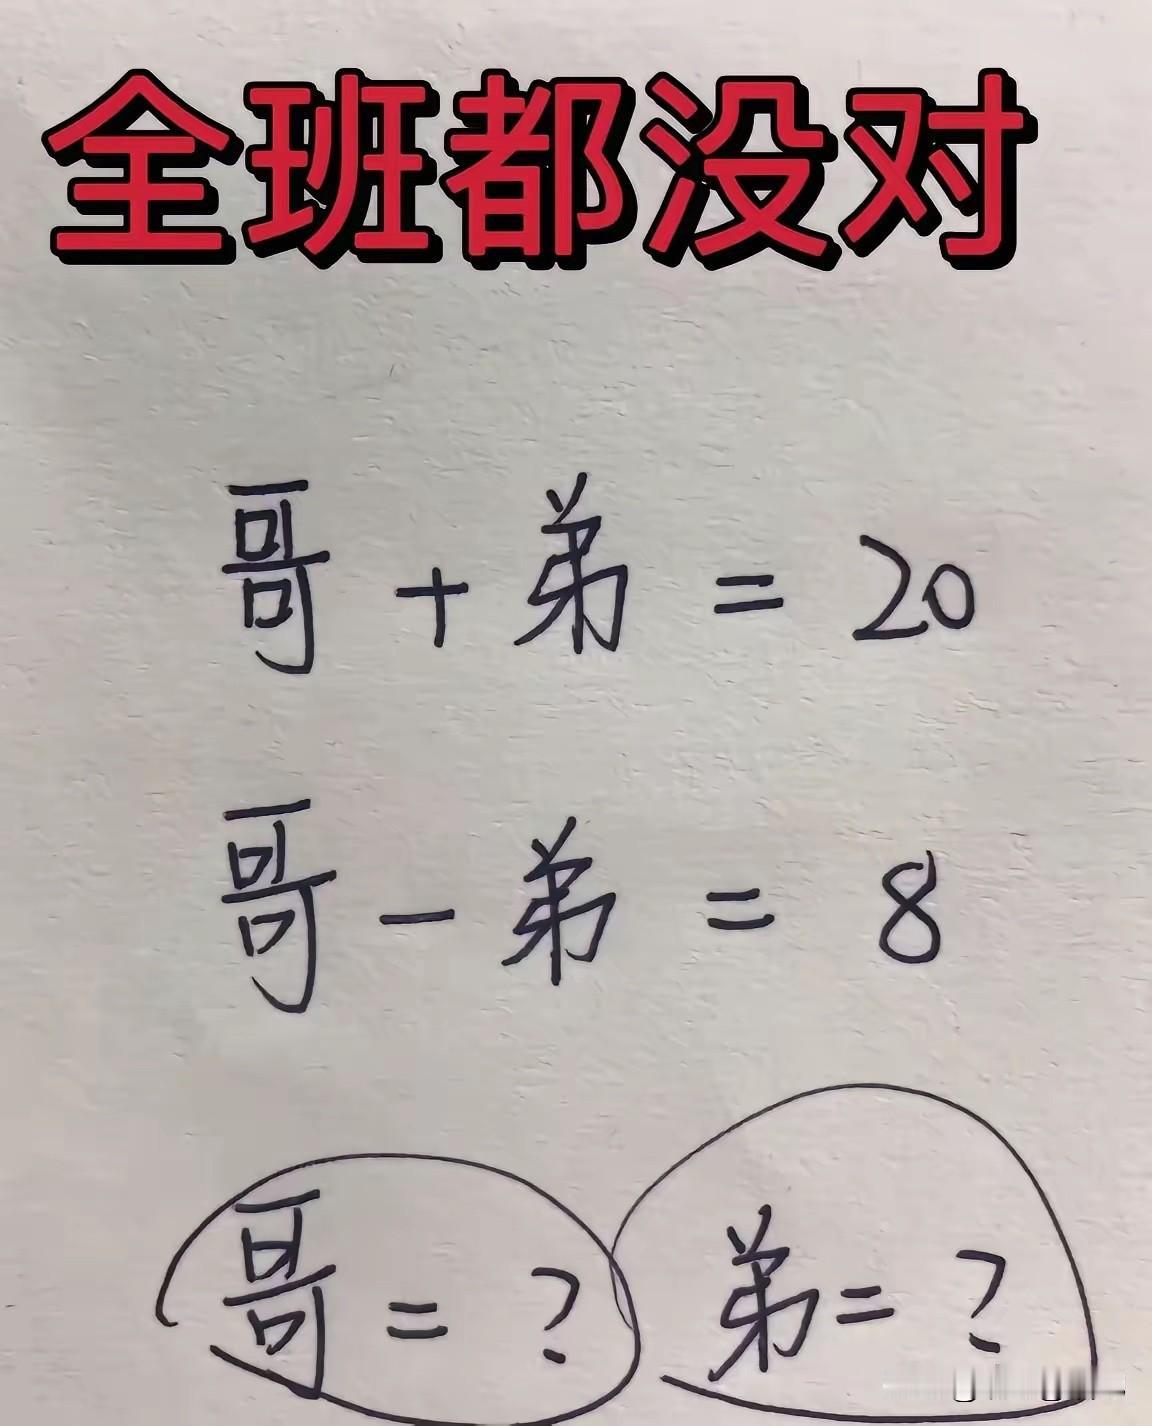 全班都没对
哥+弟=20
哥-弟=8
哥=? 弟=?